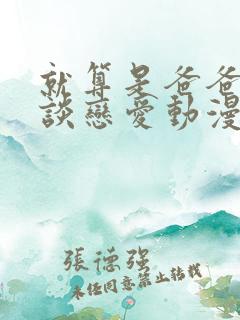 就算是爸爸
談戀愛動漫
張德強
未經同意禁止轉載